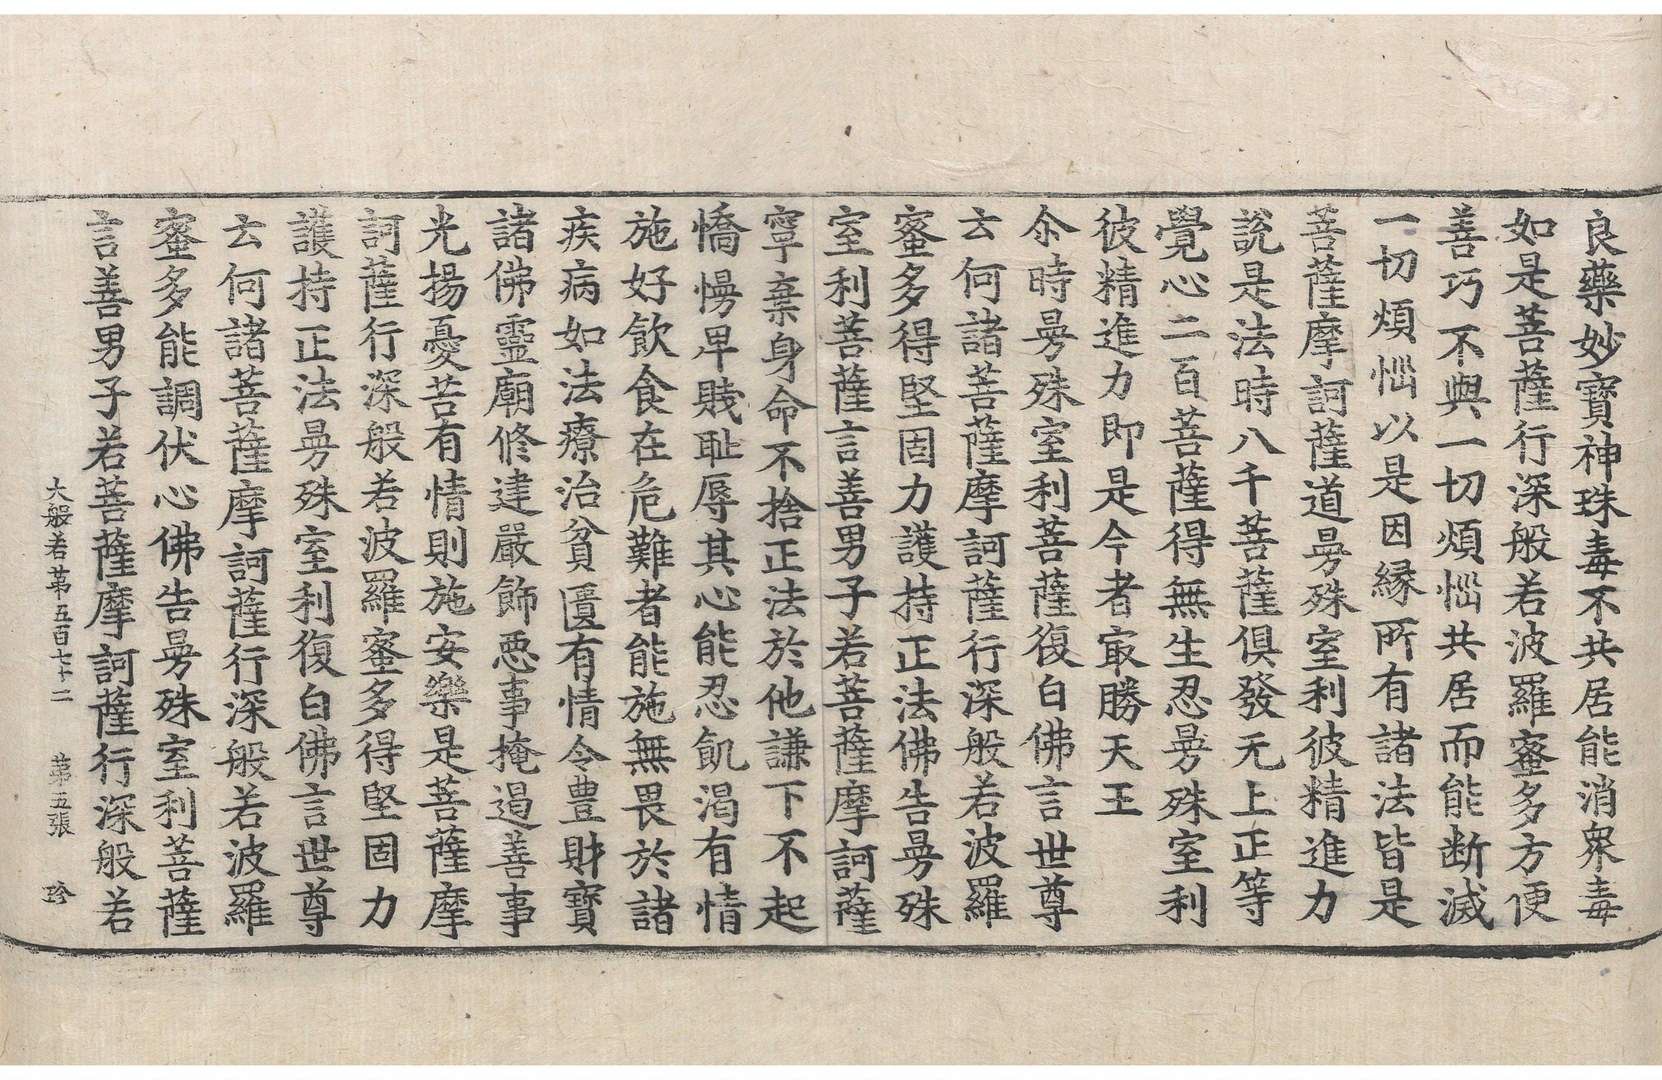 良藥妙寶神珠毒不共居能消衆毒
如是菩薩行深般若波羅蜜多方便
善巧不與一切煩惱共居而能斷滅
一切煩惱以是因縁所有諸法皆是
菩薩摩訶薩道曼殊室利彼精進力
說是法時八千菩薩俱發无上正等
覺心二百菩薩得無生忍曼殊室利
彼精進力即是今者㝡勝天王
尒時曼殊室利菩薩復白佛言世尊
云何諸菩薩摩訶薩行深般若波羅
蜜多得堅固力護持正法佛告曼殊
室利菩薩言善男子若菩薩摩訶薩
寧棄身命不捨正法於他謙下不起
憍慢卑賤恥辱其心能忍飢渴有情
施好飲食在危難者能施無畏於諸
疾病如法療治貧匱有情令豊財寶
諸佛靈廟修建嚴飾惡事掩遏善事
光揚憂苦有情則施安樂是菩薩摩
訶薩行深般若波羅蜜多得堅固力
護持正法曼殊室利復白佛言世尊
云何諸菩薩摩訶薩行深般若波羅
蜜多能調伏心佛告曼殊室利菩薩
言善男子若菩薩摩訶薩行深般若
大般若第五百七十二 第五張 珍